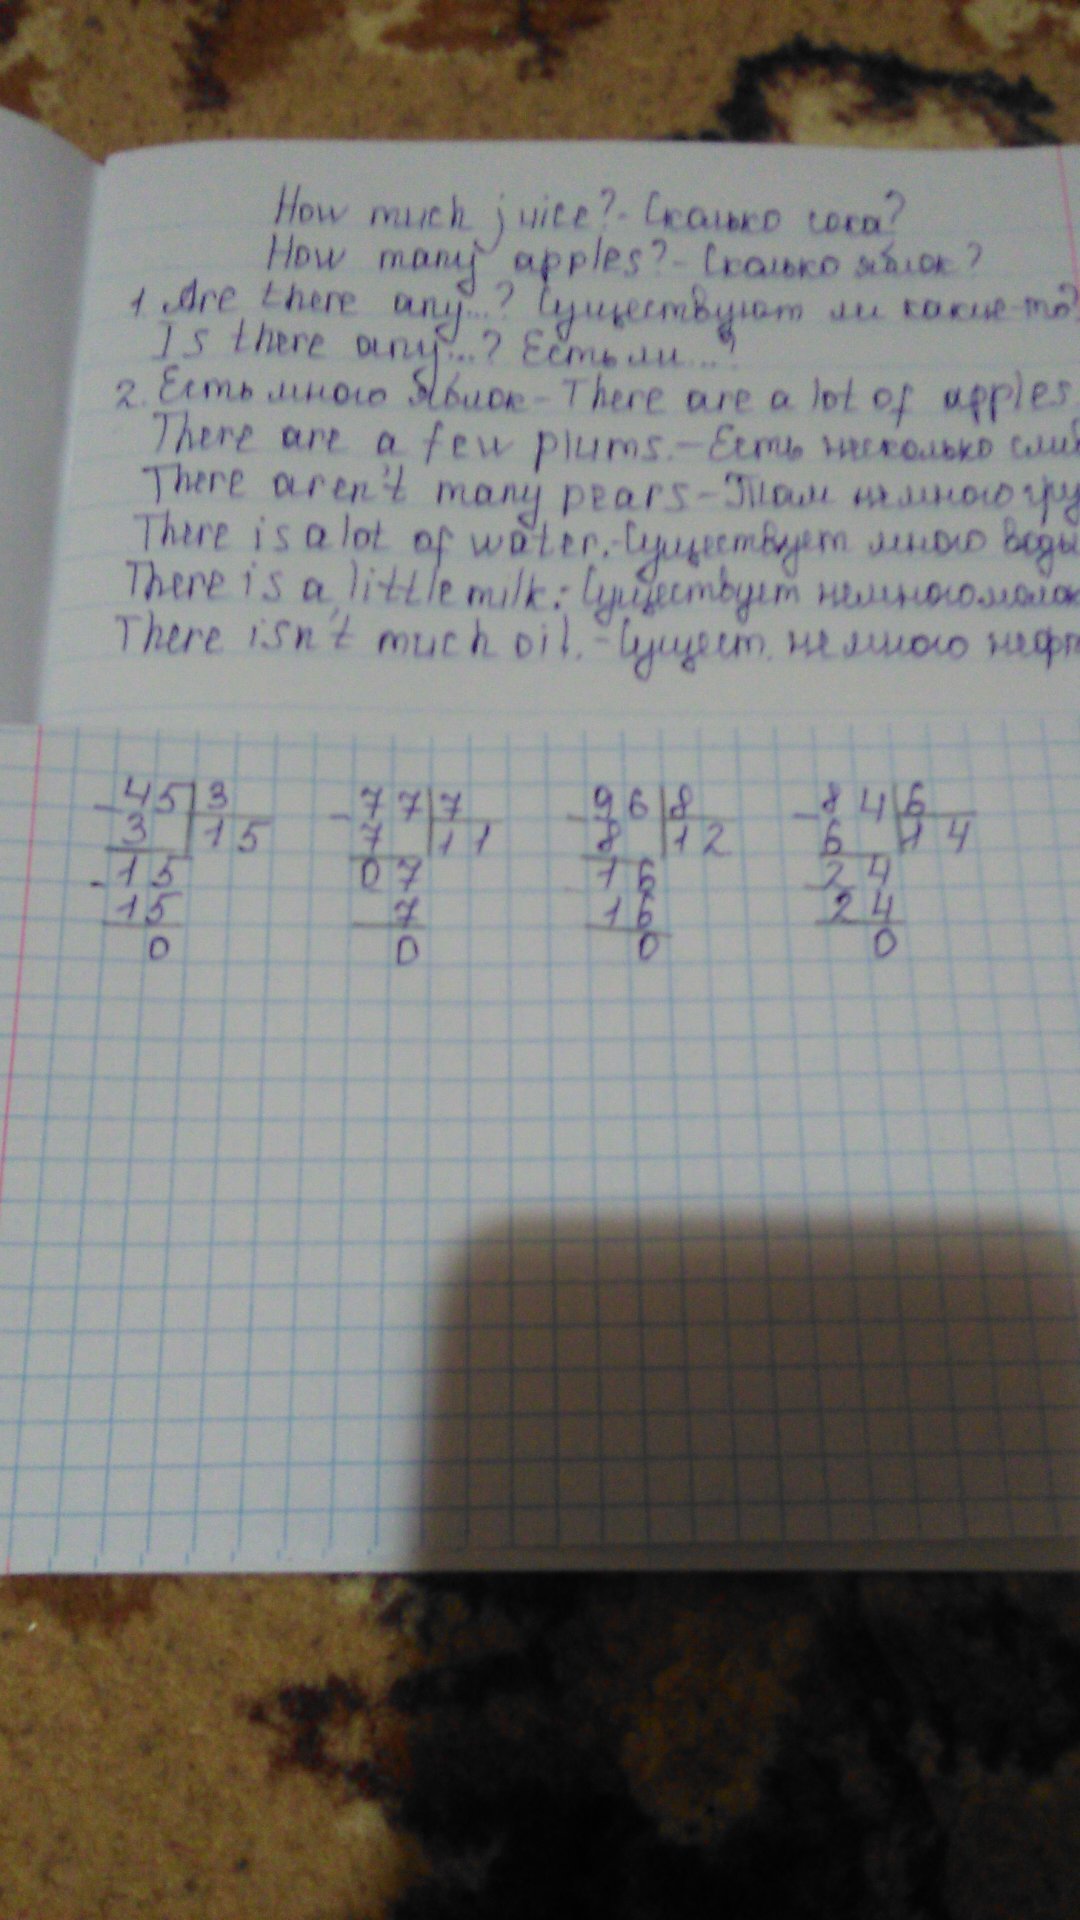 How much juice? - Сколько сока?
How many apples? - Сколько яблок?
1. Are there any...? Существуют ли какие-то?
Is there any...? Есть ли...?
2. Есть много яблок - There are a lot of apples.
There are a few plums. - Есть несколько
There aren't many pears - Там немного
There is a lot of water. - Существует много воды
There is a little milk. - Существует немного
There isn't much oil. - Сущест. немного
- 45 3 - 77 7 - 96 8 - 84 6
3 15 7 11 8 12 6 14
- 15 07 16 24
15 7 16 24
0 0 0 0